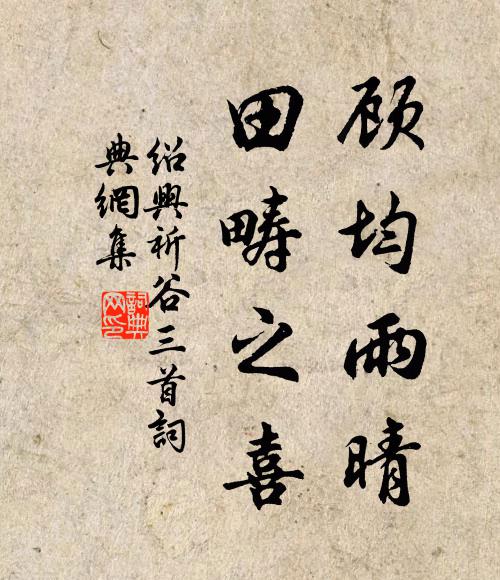 顾均雨晴
田畴之喜
绍興祈谷三首詞
典網集
詞典
网印